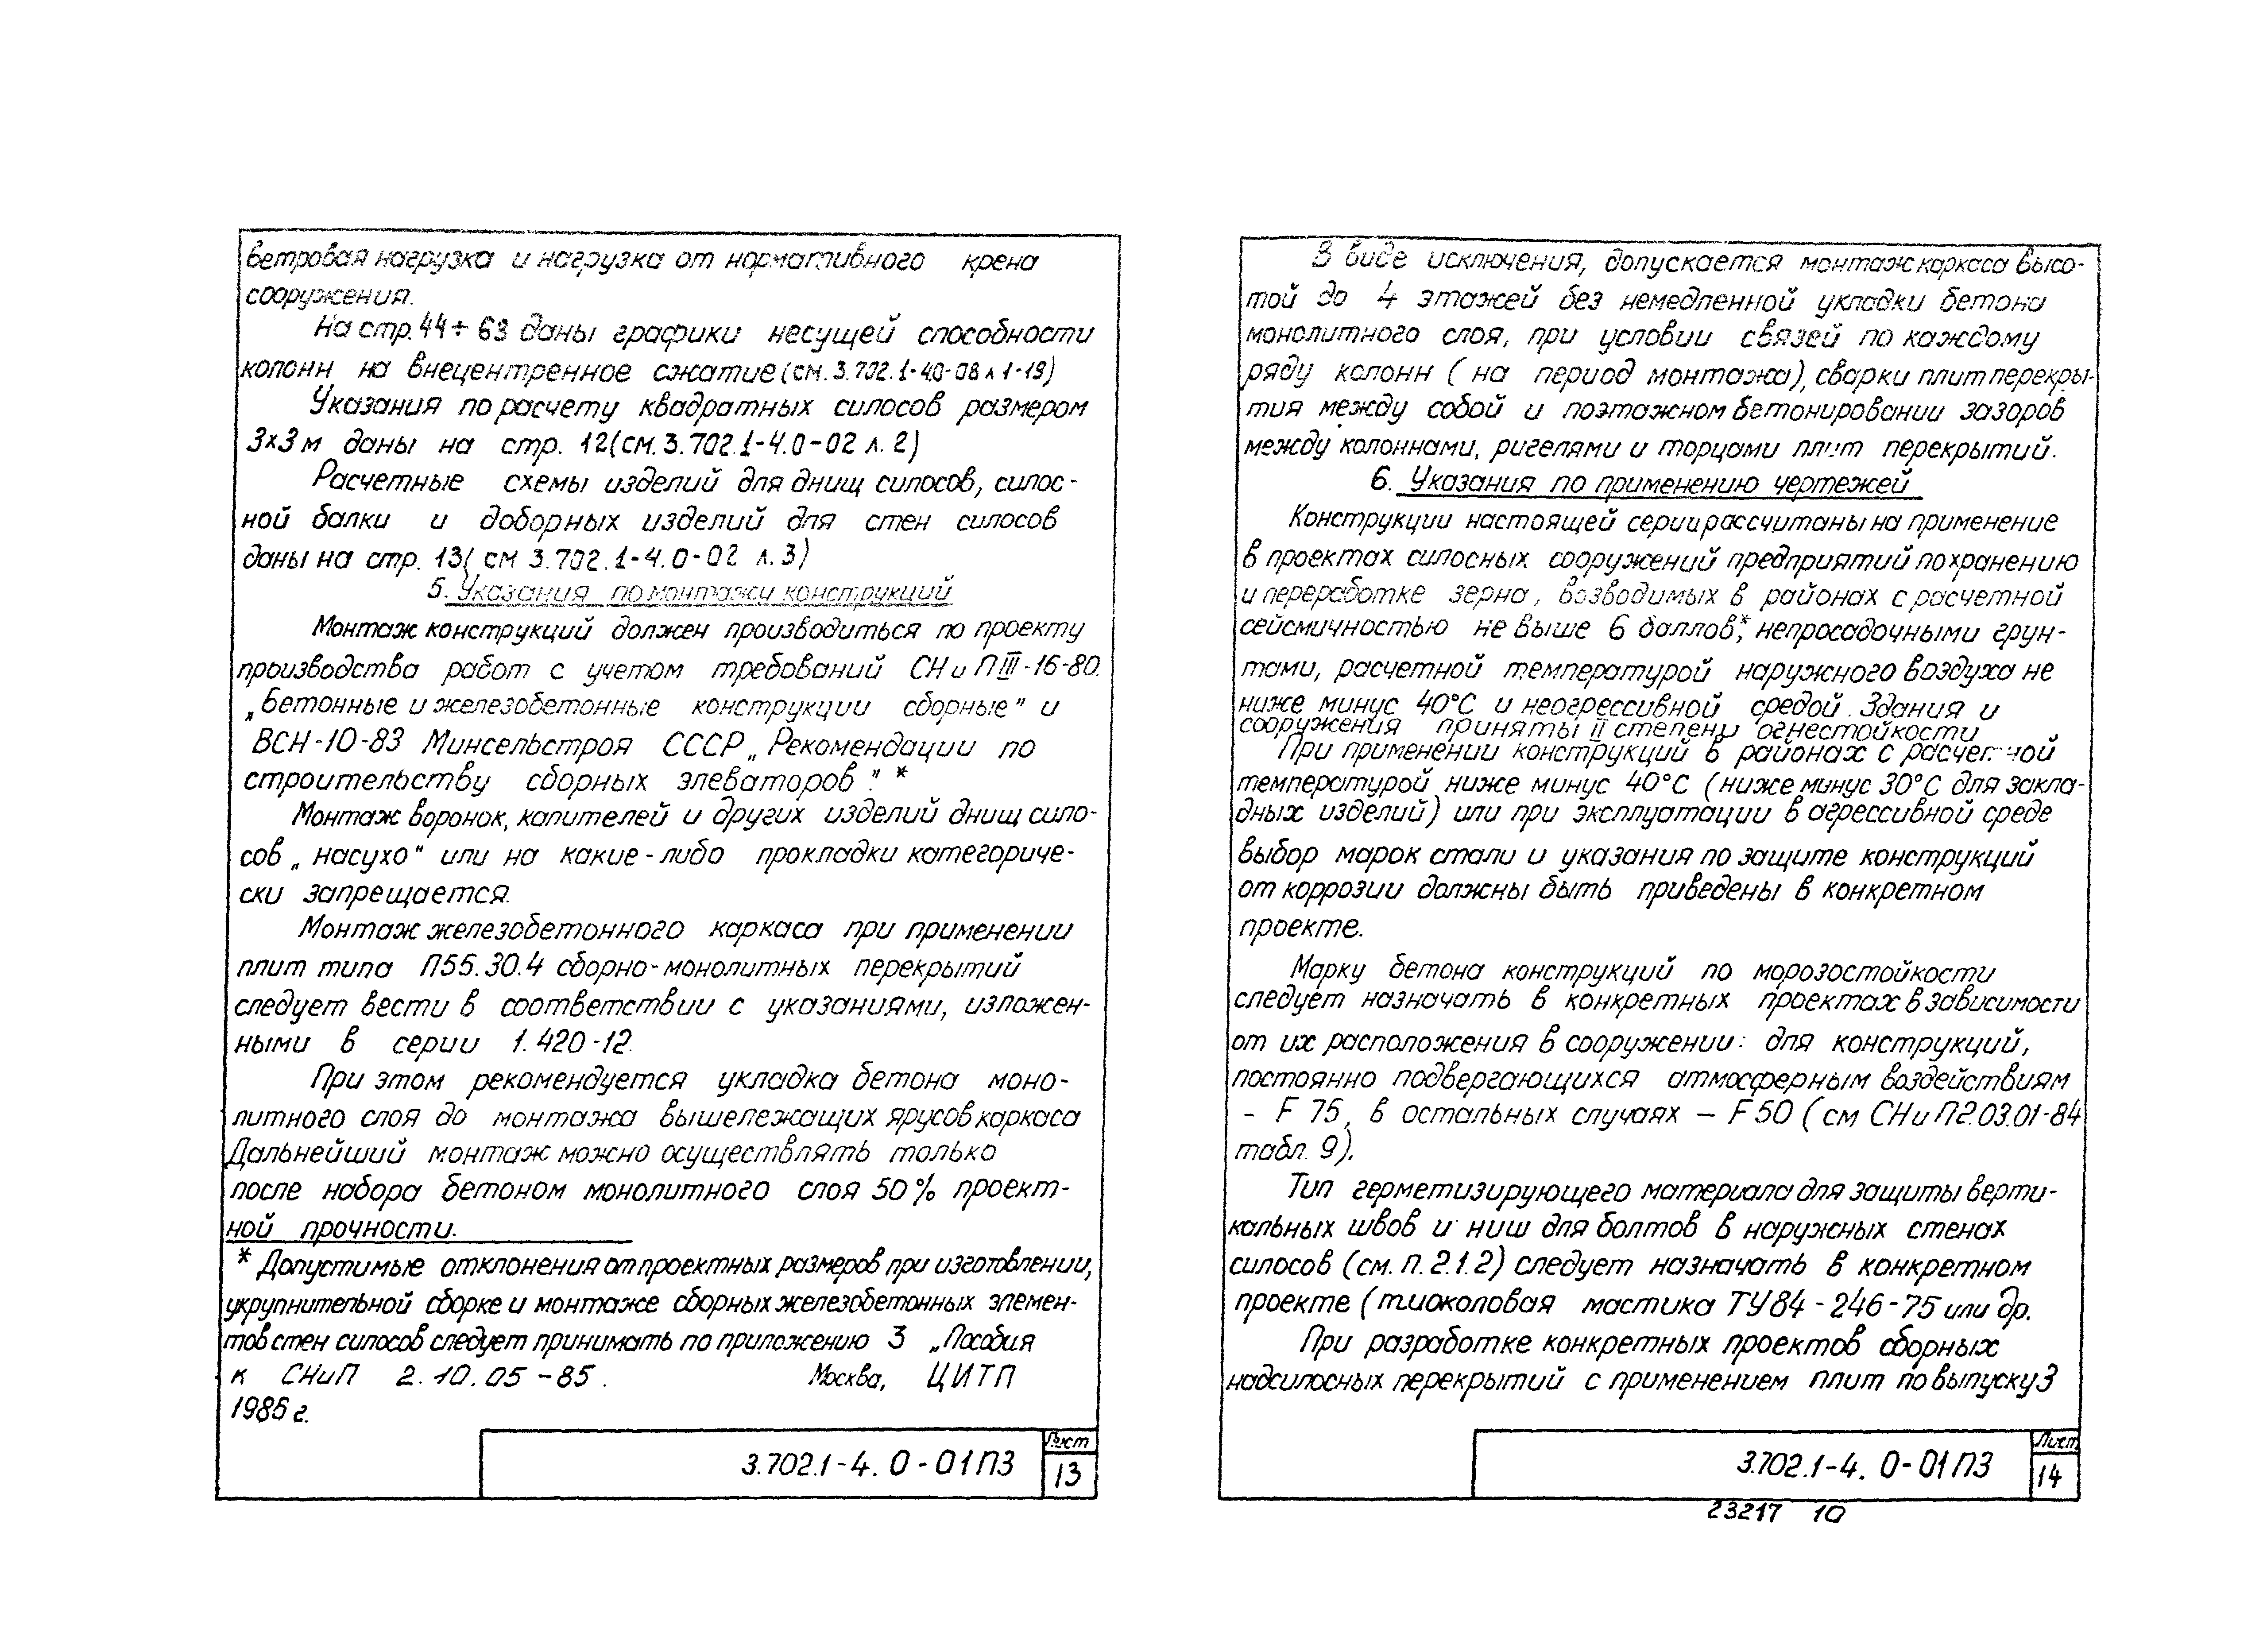 ветровая нагрузка и нагрузка от нормативного крена
сооружения.
На стр. 44÷63 даны графики несущей способности
колонн на внецентренное сжатие (см. 3.702.1-4.0-08 л 1-19)
Указания по расчету квадратных силосов размером
3х3м даны на стр. 12(см. 3.702.1-4.0-02 л. 2)
Расчетные схемы изделий для днищ силосов, силос-
ной балки и доборных изделий для стен силосов
даны на стр. 13( см 3.702.1-4.0-02 л.3)
5. Указания по монтажу конструкций
Монтаж конструкций должен производиться по проекту
производства работ с учетом требований СНиП III-16-80.
„Бетонные и железобетонные конструкции сборные" и
ВСН-10-83 Минсельстроя СССР „Рекомендации по
строительству сборных элеваторов". *
Монтаж воронок, капителей и других изделий днищ сило-
сов „насухо" или на какие-либо прокладки категориче-
ски запрещается.
Монтаж железобетонного каркаса при применении
плит типа П55.30.4 сборно-монолитных перекрытий
следует вести в соответствии с указаниями, изложен-
ными в серии 1.420-12.
При этом рекомендуется укладка бетона моно-
литного слоя до монтажа вышележащих ярусов каркаса
Дальнейший монтаж можно осуществлять только
после набора бетоном монолитного слоя 50% проект-
ной прочности.
* Допустимые отклонения от проектных размеров при изготовлении,
укрупнительной сборке и монтаже сборных железобетонных элемен-
тов стен силосов следует принимать по приложению 3 „Пособия
к СНиП 2.10.05-85. Москва, ЦИТП
1985 г.
3.702.1-4. 0-01ПЗ
Лист
13
В виде исключения, допускается монтаж каркаса высо-
той до 4 этажей без немедленной укладки бетона
монолитного слоя, при условии связей по каждому
ряду колонн ( на период монтажа), сварки плит перекры-
тия между собой и поэтажном бетонировании зазоров
между колоннами, ригелями и торцами плит перекрытий.
6. Указания по применению чертежей
Конструкции настоящей серии рассчитаны на применение
в проектах силосных сооружений предприятий по хранению
и переработке зерна, возводимых в районах с расчетной
сейсмичностью не выше 6 баллов*, непросадочными грун-
тами, расчетной температурой наружного воздуха не
ниже минус 40°С и неагрессивной средой. Здания и
сооружения приняты II степени огнестойкости
При применении конструкций в районах с расчетной
температурой ниже минус 40°С (ниже минус 30°С для закла-
дных изделий) или при эксплуатации в агрессивной среде
выбор марок стали и указания по защите конструкций
от коррозии должны быть приведены в конкретном
проекте.
Марку бетона конструкций по морозостойкости
следует назначать в конкретных проектах в зависимости
от их расположения в сооружении: для конструкций,
постоянно подвергающихся атмосферным воздействиям
- F 75, в остальных случаях – F50 ( см СНиП 2.03.01-84
табл. 9).
Тип герметизирующего материала для защиты верти-
кальных швов и ниш для болтов в наружных стенах
силосов (см. п. 2.1.2) следует назначать в конкретном
проекте (тиоколовая мастика ТУ84-246-75 или др.
При разработке конкретных проектов сборных
надсилосных перекрытий с применением плит по выпуску 3
3.702.1-4. 0-01ПЗ
Лист
14
23217 10